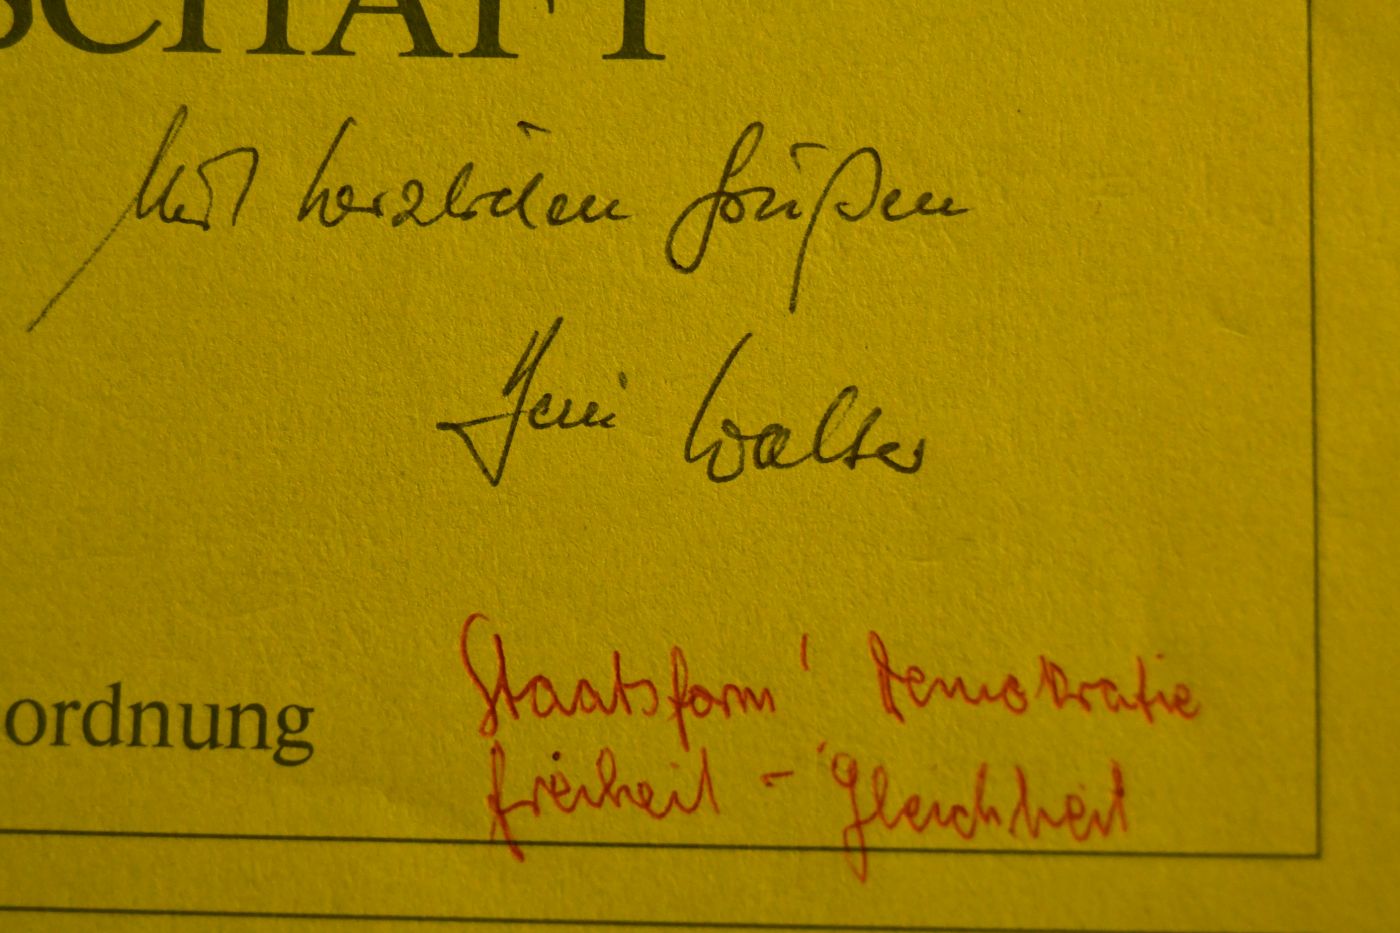 SCHAFT
Mit herzlichen Grüßen
Ihr Walter
ordnung
Staatsform Demokratie
Freiheit - Gleichheit